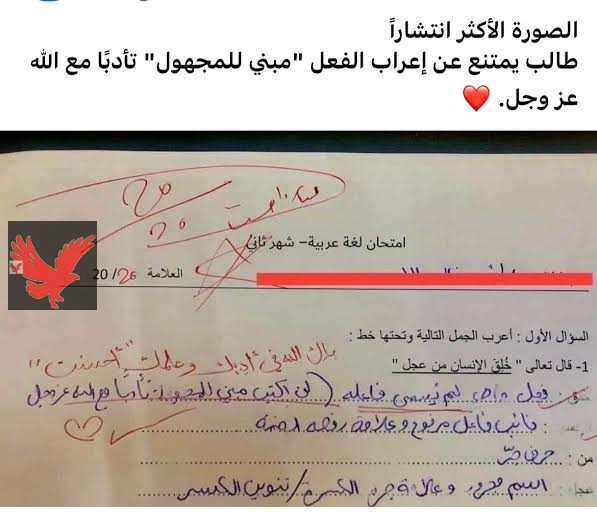 الصورة الأكثر انتشاراً
طالب يمتنع عن إعراب الفعل "مبني للمجهول" تأدبًا مع الله
عز وجل. ❤️
أحسنت
20
20
امتحان لغة عربية– شهر ثاني
العلامة 20/20
السؤال الأول : أعرب الجمل التالية وتحتها خط :
بارك الله في أدبك وعلمك "أحسنت"
1- قال تعالى " خُلِقَ الإنسان من عجل "
خلق: فعل ماضٍ لم يُسمى فاعله (لن أكتب مبني للمجهول تأدباً مع الله عز وجل
: نائب فاعل مرفوع وعلامة رفعه الضمة
من : حرف جرّ
عجل: اسم مجرور وعلامة جره الكسرة/تنوين الكسر